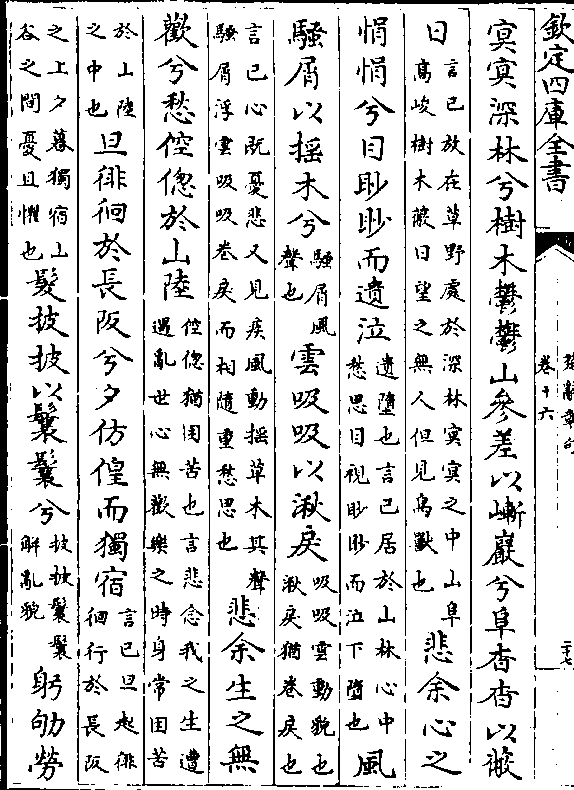 欽定四庫全書
楚辭章句
卷十六
二十七
冥冥深林兮樹木鬱鬱山參差以嶃巖兮阜杳杳以蔽
日
言己放在草野處於深林冥冥之中山阜
高峻樹木蔽日望之無人但見鳥獸也
悲余心之
悁悁兮目眇眇而遺泣
遺墮也言己居於山林心中
愁思目視眇眇而泣下墮也
風
騷屑以揺木兮
騷屑風
聲也
雲吸吸以湫戾
吸吸雲動貌也
湫戾猶卷戾也
言己心既憂悲又見疾風動揺草木其聲
騷屑浮雲吸吸卷戾而相隨重愁思也
悲余生之無
歡兮愁倥偬於山陸
倥偬猶困苦也言悲念我之生遭
遇亂世心無歡樂之時身常困苦
於山陸
之中也
旦徘徊於長阪兮夕仿偟而獨宿
言己旦起徘
徊行於長阪
之上夕暮獨宿山
谷之間憂且懼也
髮披披以鬤鬤兮
披披鬤鬤
解亂貌
躬劬勞